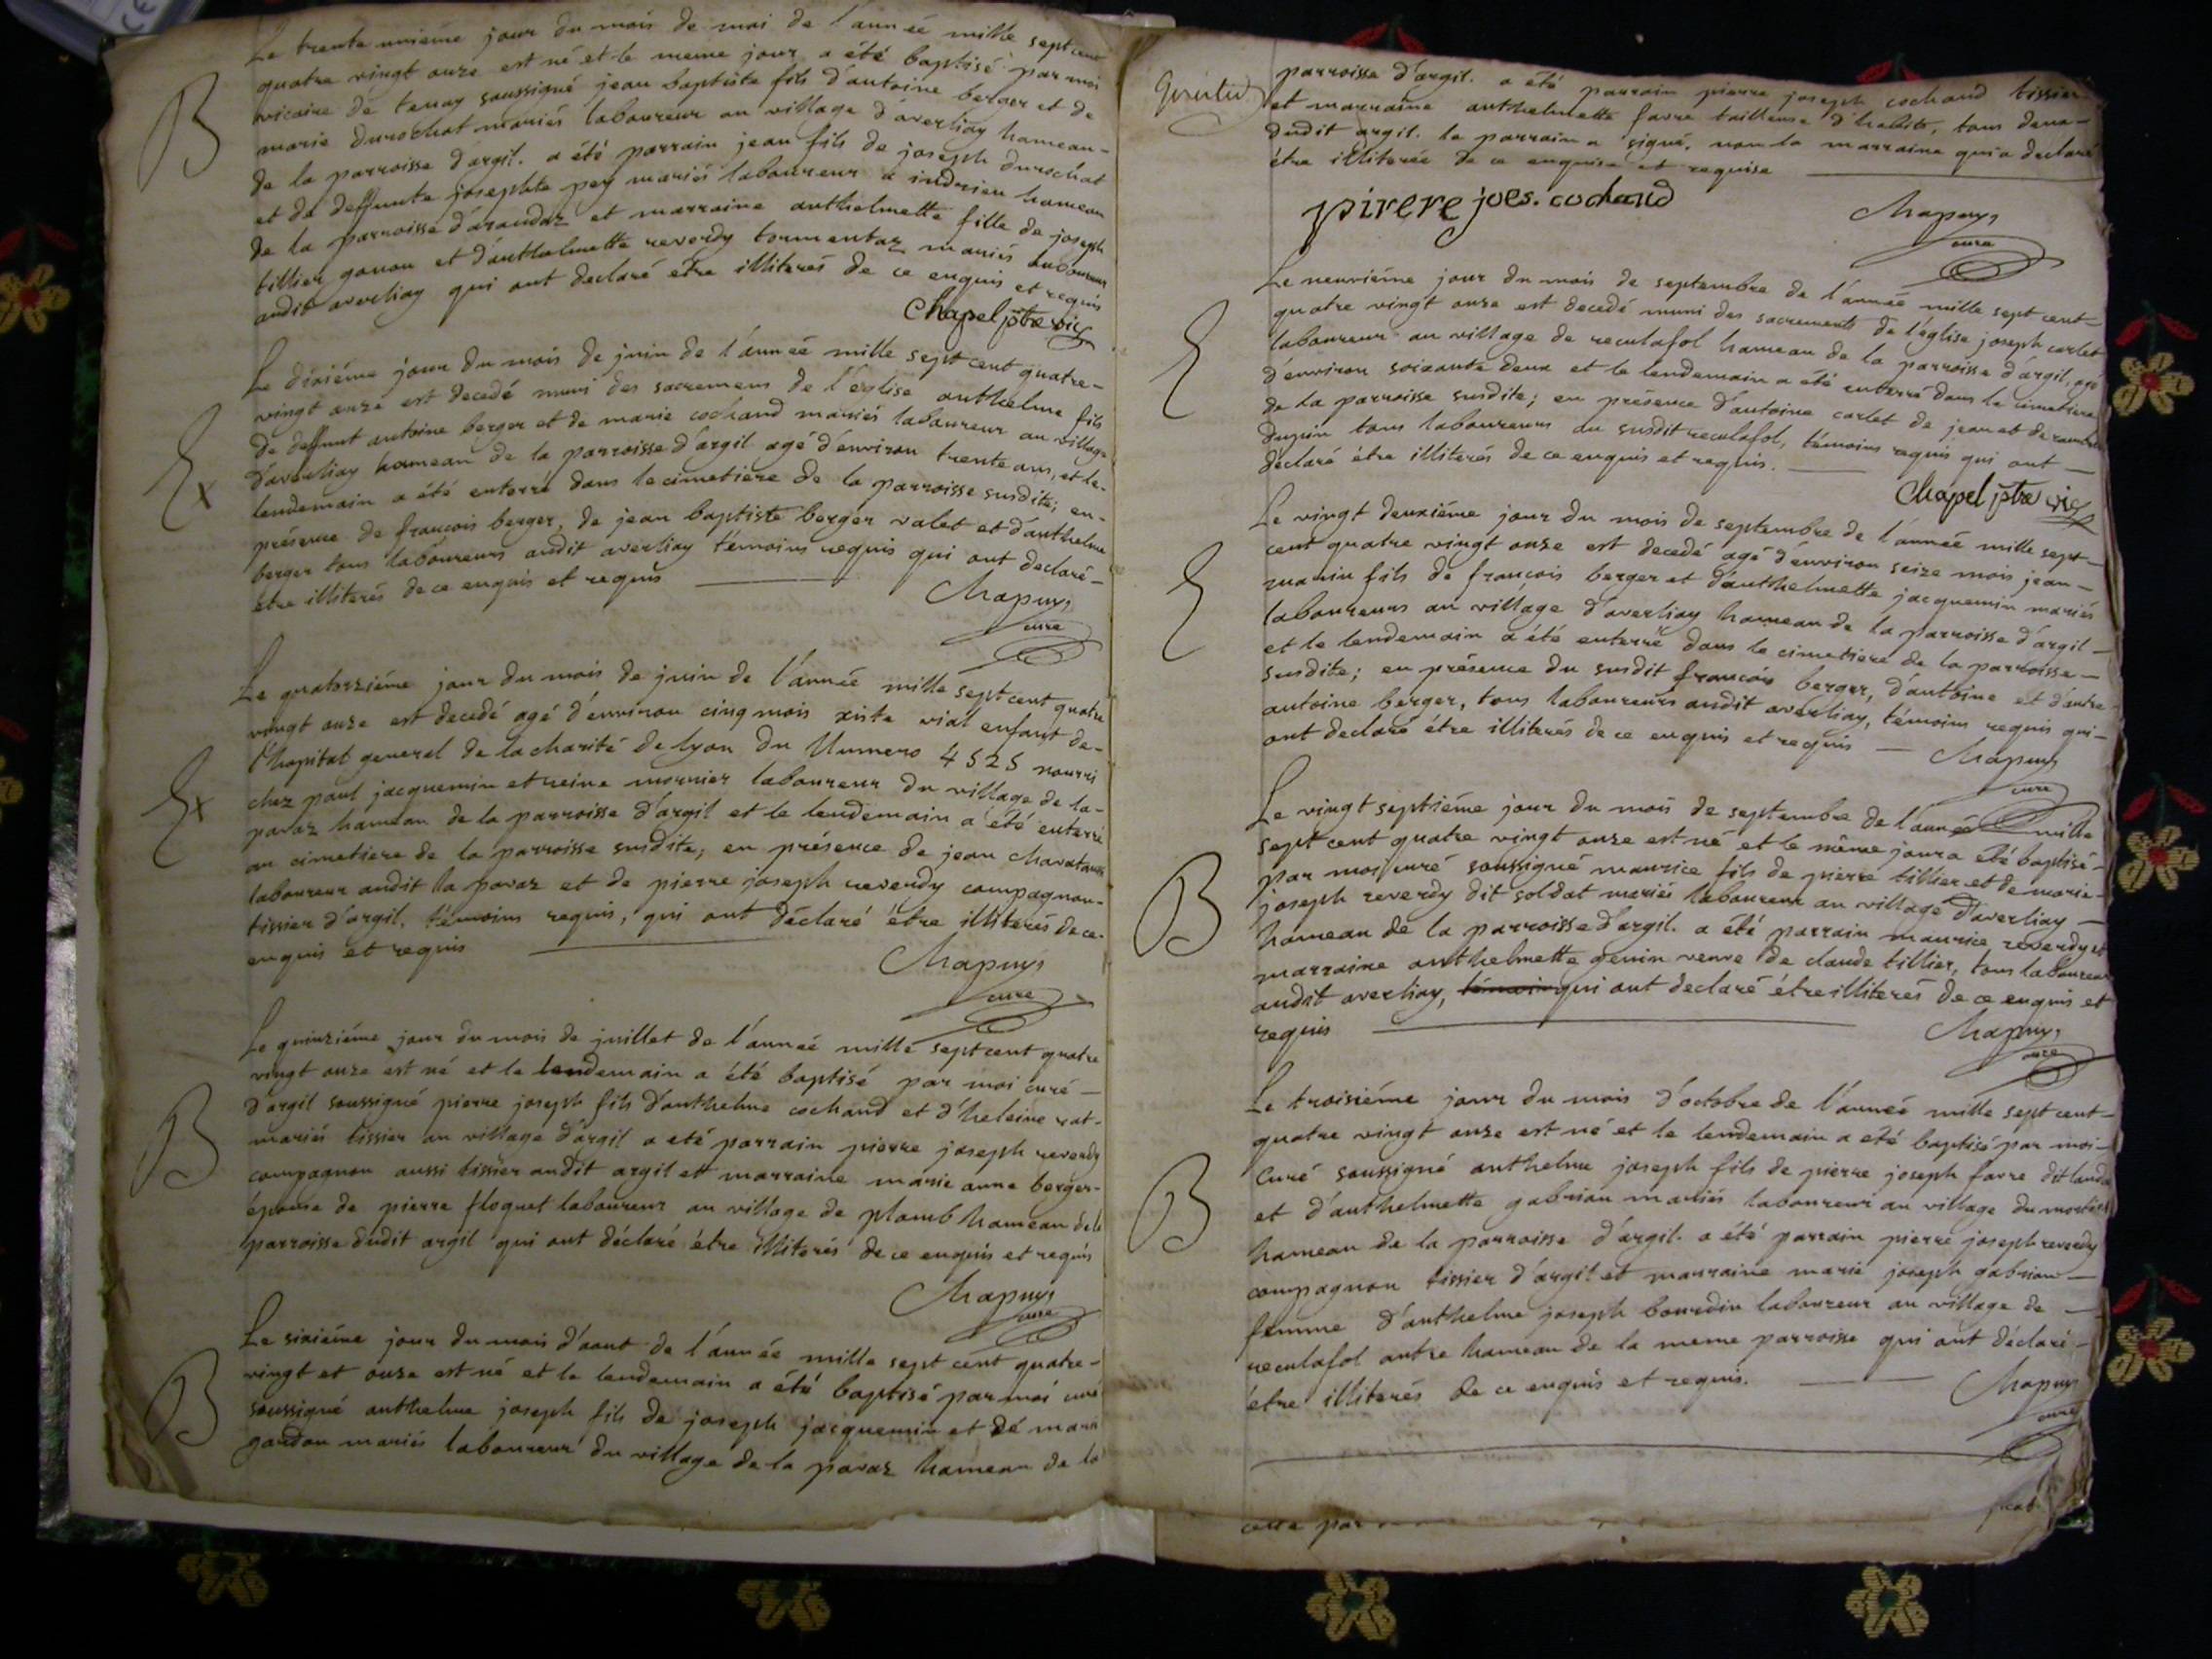 Le trente unième jour du mois de mai de l'année mille sept cent
quatre vingt onze est né et le meme jour a été baptisé par moi
B
vicaire de tenay soussigné jean baptiste fils d'antoine berger et de
marie durochat mariés laboureur au village d'averliay hameau-
de la parroisse d'argil. a été parrain jean fils de joseph durochat
et de deffunte josephte pey mariés laboureur a indrieu hameau
de la parroisse d'arandaz et marraine anthelmette fille de joseph
tillier gonon et d'anthelmette reverdy tormentaz mariés laboureur
audit averliay qui ont declaré être illiterés de ce enquis et requis
Chapel ptre vic
Le dixiéme jour du mois de juin de l'année mille sept cent quatre-
vingt onze est decedé muni des sacremens de l'église anthelme fils
de deffunt antoine berger et de marie cochand mariés laboureur au village
Ex
d'averliay hameau de la parroisse d'argil agé d'environ trente ans, et le-
lendemain a été enterré dans le cimetiere de la parroisse susdite; en-
présence de françois berger, de jean baptiste berger valet et d'anthelme
berger tous laboureurs audit averliay témoins requis qui ont declaré-
être illiterés de ce enquis et requis
Chapuys
curé
Le quatorziéme jour du mois de juin de l'année mille sept cent quatre
vingt onze est decedé agé d'environ cinq mois xiste vial enfant de-
l'hopital general de la charité de lyon du Numero 4525 nourri
Ex
chez paul jacquemin et reine mornier laboureur du village de la-
pavaz hameau de la parroisse d'argil et le lendemain a été enterré
au cimetiere de la parroisse susdite; en présence de jean
laboureur audit la pavaz et de pierre joseph reverdy compagnon-
tissier d'argil. témoins requis, qui ont déclaré être illiterés de ce-
enquis et requis
Chapuys
curé
Le quinziéme jour du mois de juillet de l'année mille sept cent quatre
vingt onze est né et le lendemain a été baptisé par moi curé-
B
d'argil soussigné pierre joseph fils d'anthelme cochand et d'heleine rat-
mariés tissier au village d'argil a eté parrain pierre joseph reverdy
compagnon aussi tissier audit argil et marraine marie anne berger-
épouse de pierre floquet laboureur au village de plomb hameau de la
parroisse dudit argil qui ont déclaré être illiterés de ce enquis et requis
Chapuys
curé
Le sixiéme jour du mois d'aout de l'année mille sept cent quatre-
vingt et onze est né et le lendemain a été baptisé par moi curé
B
soussigné anthelme joseph fils de joseph jacquemin et de marie
gandon mariés laboureur du village de la pavaz hameau de la
parroisse d'argil. a été parrain pierre joseph cochand tissier
et marraine anthelmette favre tailleuse d'habits, tous deux-
dudit argil. le parrain a signé, non la marraine qui a declaré
être illiterée de ce enquise et requise
pirere joes. cochand
Chapuys
curé
Le neuviéme jour du mois de septembre de l'année mille sept cent-
quatre vingt onze est decedé muni des sacrements de l'église joseph carlet
E
laboureur au village de reculafol hameau de la parroisse d'argil, agé
d'environ soixante deux et le lendemain a été enterré dans le cimetiere
de la parroisse susdite; en présence d'antoine carlet de jean et de
dupin tous laboureurs au susdit reculafol, témoins requis qui ont-
declaré être illiterés de ce enquis et requis.
Chapel ptre vic
Le vingt deuxiéme jour du mois de septembre de l'année mille sept-
cent quatre vingt onze est decedé agé d'environ seize mois jean-
E
marin fils de françois berger et d'anthelmette jacquemin mariés
laboureurs au village d'averliay hameau de la parroisse d'argil-
et le lendemain a été enterré dans le cimetiere de la parroisse-
susdite; en présence du susdit françois berger, d'antoine et d'autre-
antoine berger, tous laboureurs audit averliay, témoins requis qui-
ont declaré être illiterés de ce enquis et requis
Chapuys
curé
Le vingt septiéme jour du mois de septembre de l'année mille
sept cent quatre vingt onze est né et le même jour a été baptisé-
B
par moi curé soussigné maurice fils de pierre tillier et de marie-
joseph reverdy dit soldat mariés laboureur au village d'averliay-
hameau de la parroisse d'argil. a été parrain maurice reverdy et
marraine anthelmette genin veuve de claude tillier, tous laboureur
audit averliay, témoins qui ont declaré être illiterés de ce enquis et
requis
Chapuys
curé
Le troisiéme jour du mois d'octobre de l'année mille sept cent-
quatre vingt onze est né et le lendemain a eté baptisé par moi-
B
curé soussigné anthelme joseph fils de pierre joseph favre dit
et d'anthelmette gabrion mariés laboureur au village du
hameau de la parroisse d'argil. a été parrain pierre joseph reverdy
compagnon tissier d'argil et marraine marie joseph gabrion-
femme d'anthelme joseph bourdin laboureur au village de-
reculafol autre hameau de la meme parroisse qui ont déclaré-
être illiterés de ce enquis et requis.
Chapuys
curé